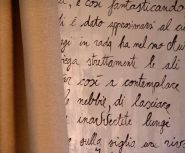 , e così fantasticando
è dato approssimarsi al ci
in rada ha nel mo
ga strettamente le ali
così a contemplare
nebbie, di lasciare
inavvertite lungi
sulla soglia